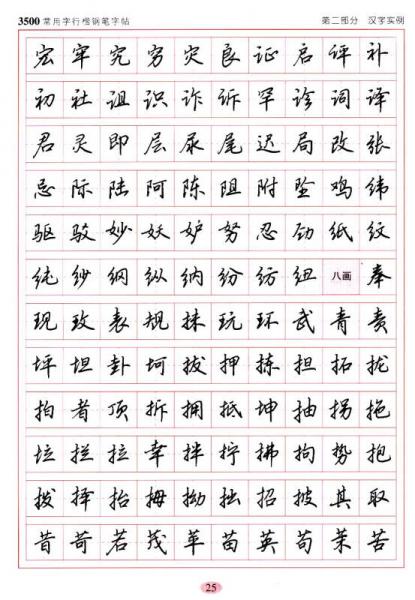 3500常用字行楷钢笔字帖 第二部分 汉字实例
宏牢究穷灾良证启评补
初社诅识诈诉罕诊词译
君灵即层尿尾迟局改张
忌际陆阿陈阻附坠鸡纬
驱驳妙妖妒努忍劲纸纹
纯纱纲纵纳纷纺纽八画奉
现玫表规抹玩环武青责
坪坦卦坷拔押拣担拓拢
拍者顶拆拥抵坤抽拐拖
垃拦拉幸拌拧拂拘势抱
拨择抬拇拗拙招披其取
昔苛若茂苹苗英苟茉苦
25